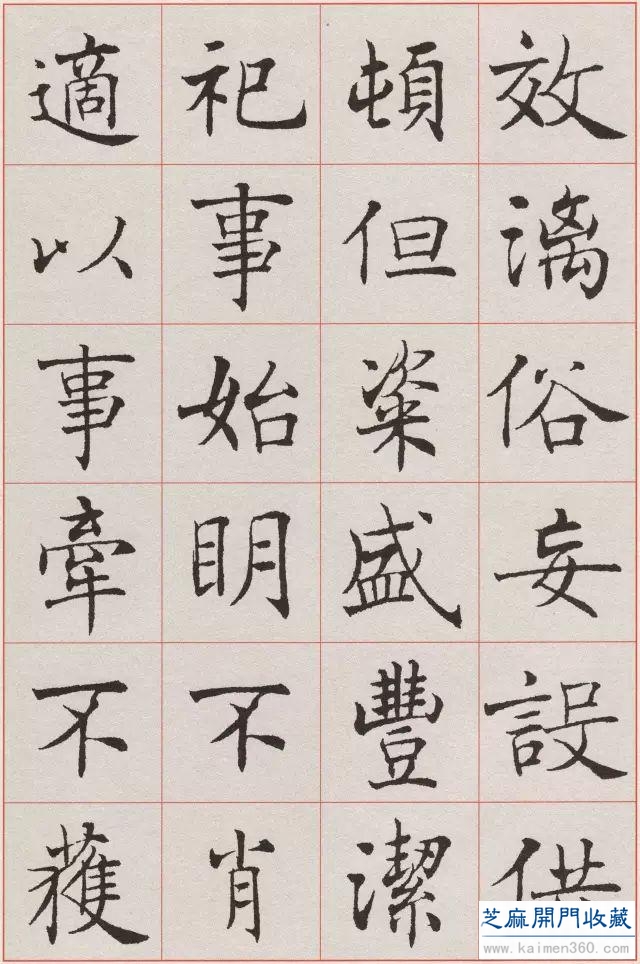 效漓俗妄設供
頓但粢盛豐潔
祀事始眀不肖
適以事牽不獲
芝麻開門收藏
www.kaimen360.com